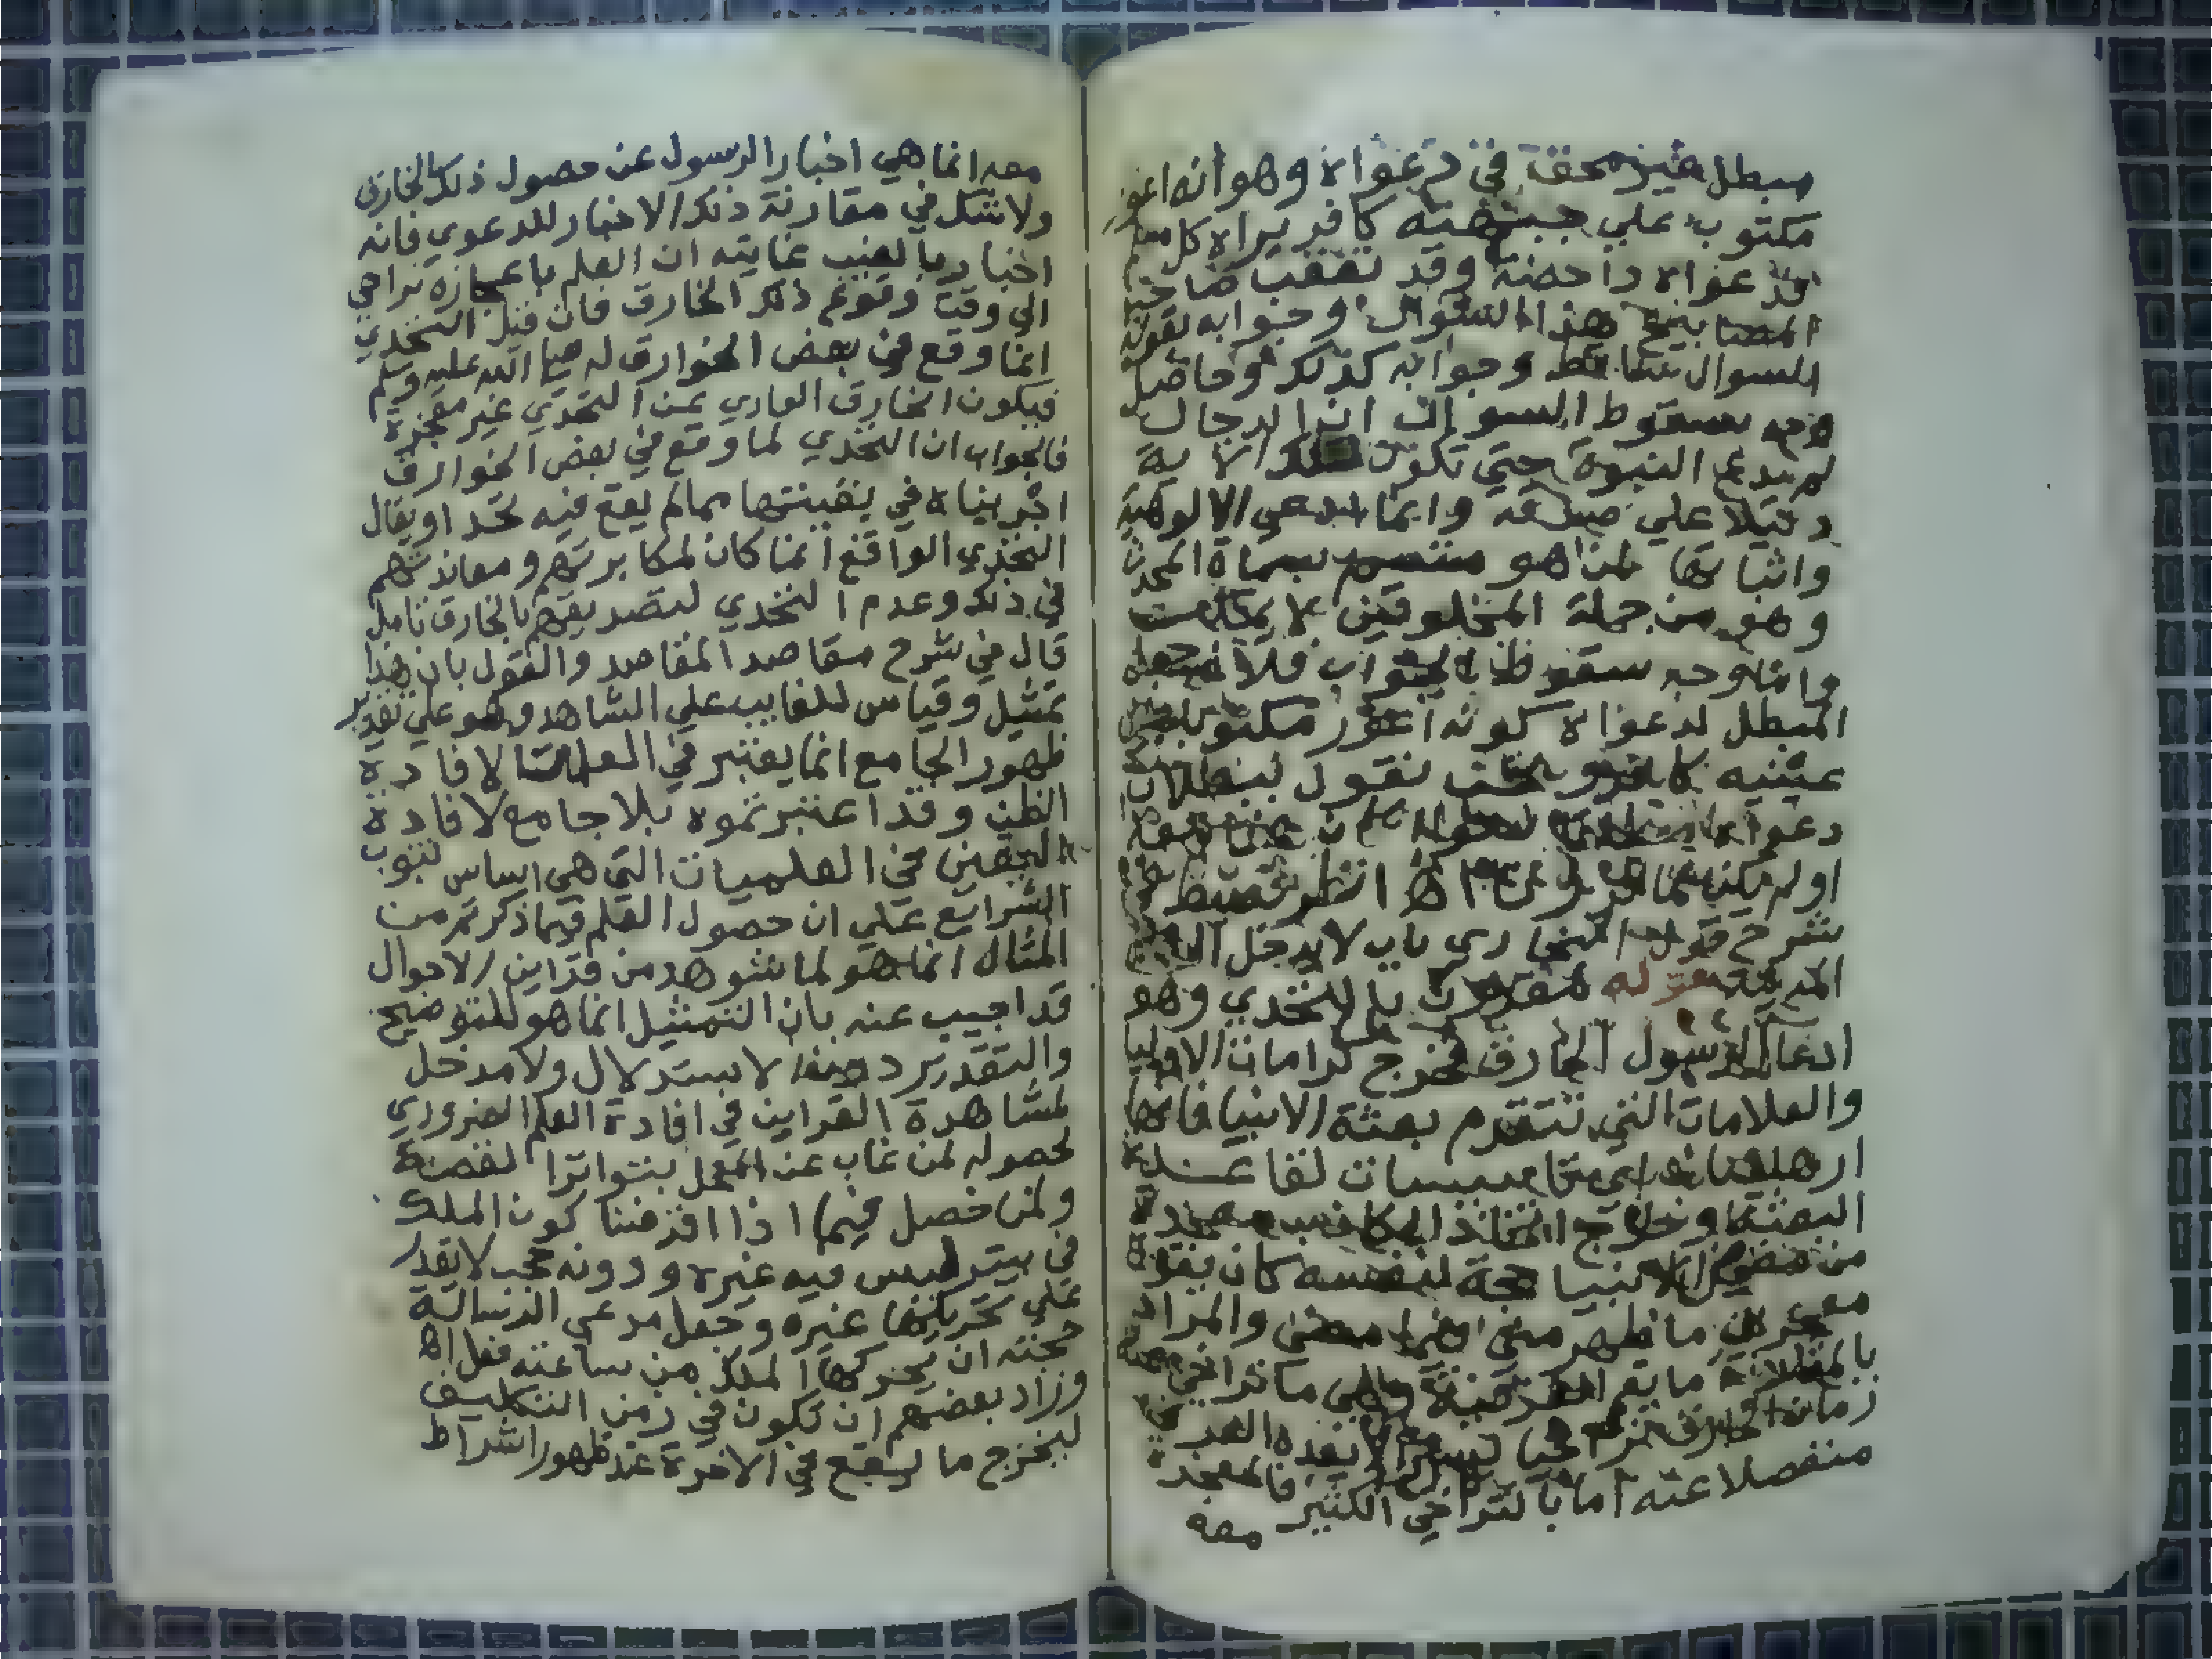 مبطل غير محق في دعواه وهو انه اعور
مكتوب علي جبهته كافر يراه كل
فدعواه داحضة وقد تعقب صاحب
المصابيح هذا السوال وجوابه بقوله
السوال ساقط وجوابه كذلك وحاصل
وجه سقوط السوال ان الدجال
لم يدع النبوة حتي تكون تلك الاية
دليلا علي صدقه وانما ادعي الالوهية
واثباتها لمن هو متسم بسماة المحدث
وهو من جملة المخلوقين لا يمكن
واما وجه سقوط الجواب فلانه جعل
المبطل لدعواه كونه اعور مكتوب بين
عينيه كافر ونحن نقول ببطلان
دعواه
او لم يكن
شرح قول البخاري باب لا يدخل الدجال
المدينة قوله مقرون بالتحدي وهو
ادعا الرسول الخارق فخرج كرامات الاوليا
والعلامات التي تتقدم بعثة الانبيا فانها
ارهاصات اي تاسيسات لقاعدة
البعثة وخرج اتخاذ الكاذب معجزة
من مضي من الانبيا حجة لنفسه كان يقول
معجزتي ما ظهر مني فيما مضي والمراد
بالمقارنة ما يعم العرفية وهي ما تراخي
زمان الخارق
منفصلا عنه اما بالتراخي الكثير فالمعجزة
معه
معه انما هي اخبار الرسول عن حصول ذلك الخارق
ولا شك في مقارنة ذلك الاخبار للدعوي فانه
اخبار بالغيب غايته ان العلم باعجازه تراخي
الي وقت وقوع ذلك الخارق فان قيل التحدي
انما وقع في بعض الخوارق له صلي الله عليه وسلم
فيكون الخارق العاري عن التحدي غير معجزة
فالجواب ان التحدي لما وقع في بعض الخوارق
اجريناه في بقيتها مما لم يقع فيه تحد او يقال
التحدي الواقع انما كان لمكابرتهم ومعاندتهم
في ذلك وعدم التحدي لتصديقهم بالخارق تامل
قال في شرح مقاصد المقاصد والقول بان هذا
تمثيل وقياس للغايب علي الشاهد وهو علي تقدير
ظهور الجامع انما يعتبر في العمليات لافادة
الظن وقد اعتبرتموه بلا جامع لافادة
اليقين في العلميات التي هي اساس ثبوت
الشرايع علي ان حصول العلم فيما ذكرتم من
المثال انما هو لما شوهد من قراين الاحوال
قد اجيب عنه بان التمثيل انما هو للتوضيح
والتقدير دون الاستدلال ولا مدخل
لمشاهدة القراين في افادة العلم الضروري
لحصوله لمن غاب عن المحل بتواتر القصة
ولمن حصل فيما اذا افرضنا كون الملك
في بيت ليس فيه غيره ودونه حجب لا يقدر
علي تحريكها غيره وجعل مدعي الرسالة
حجته ان يحركها الملك من ساعته ففعل اه
وزاد بعضهم ان تكون في زمن التكليف
ليخرج ما يقع في الاخرة عند ظهور اشراط